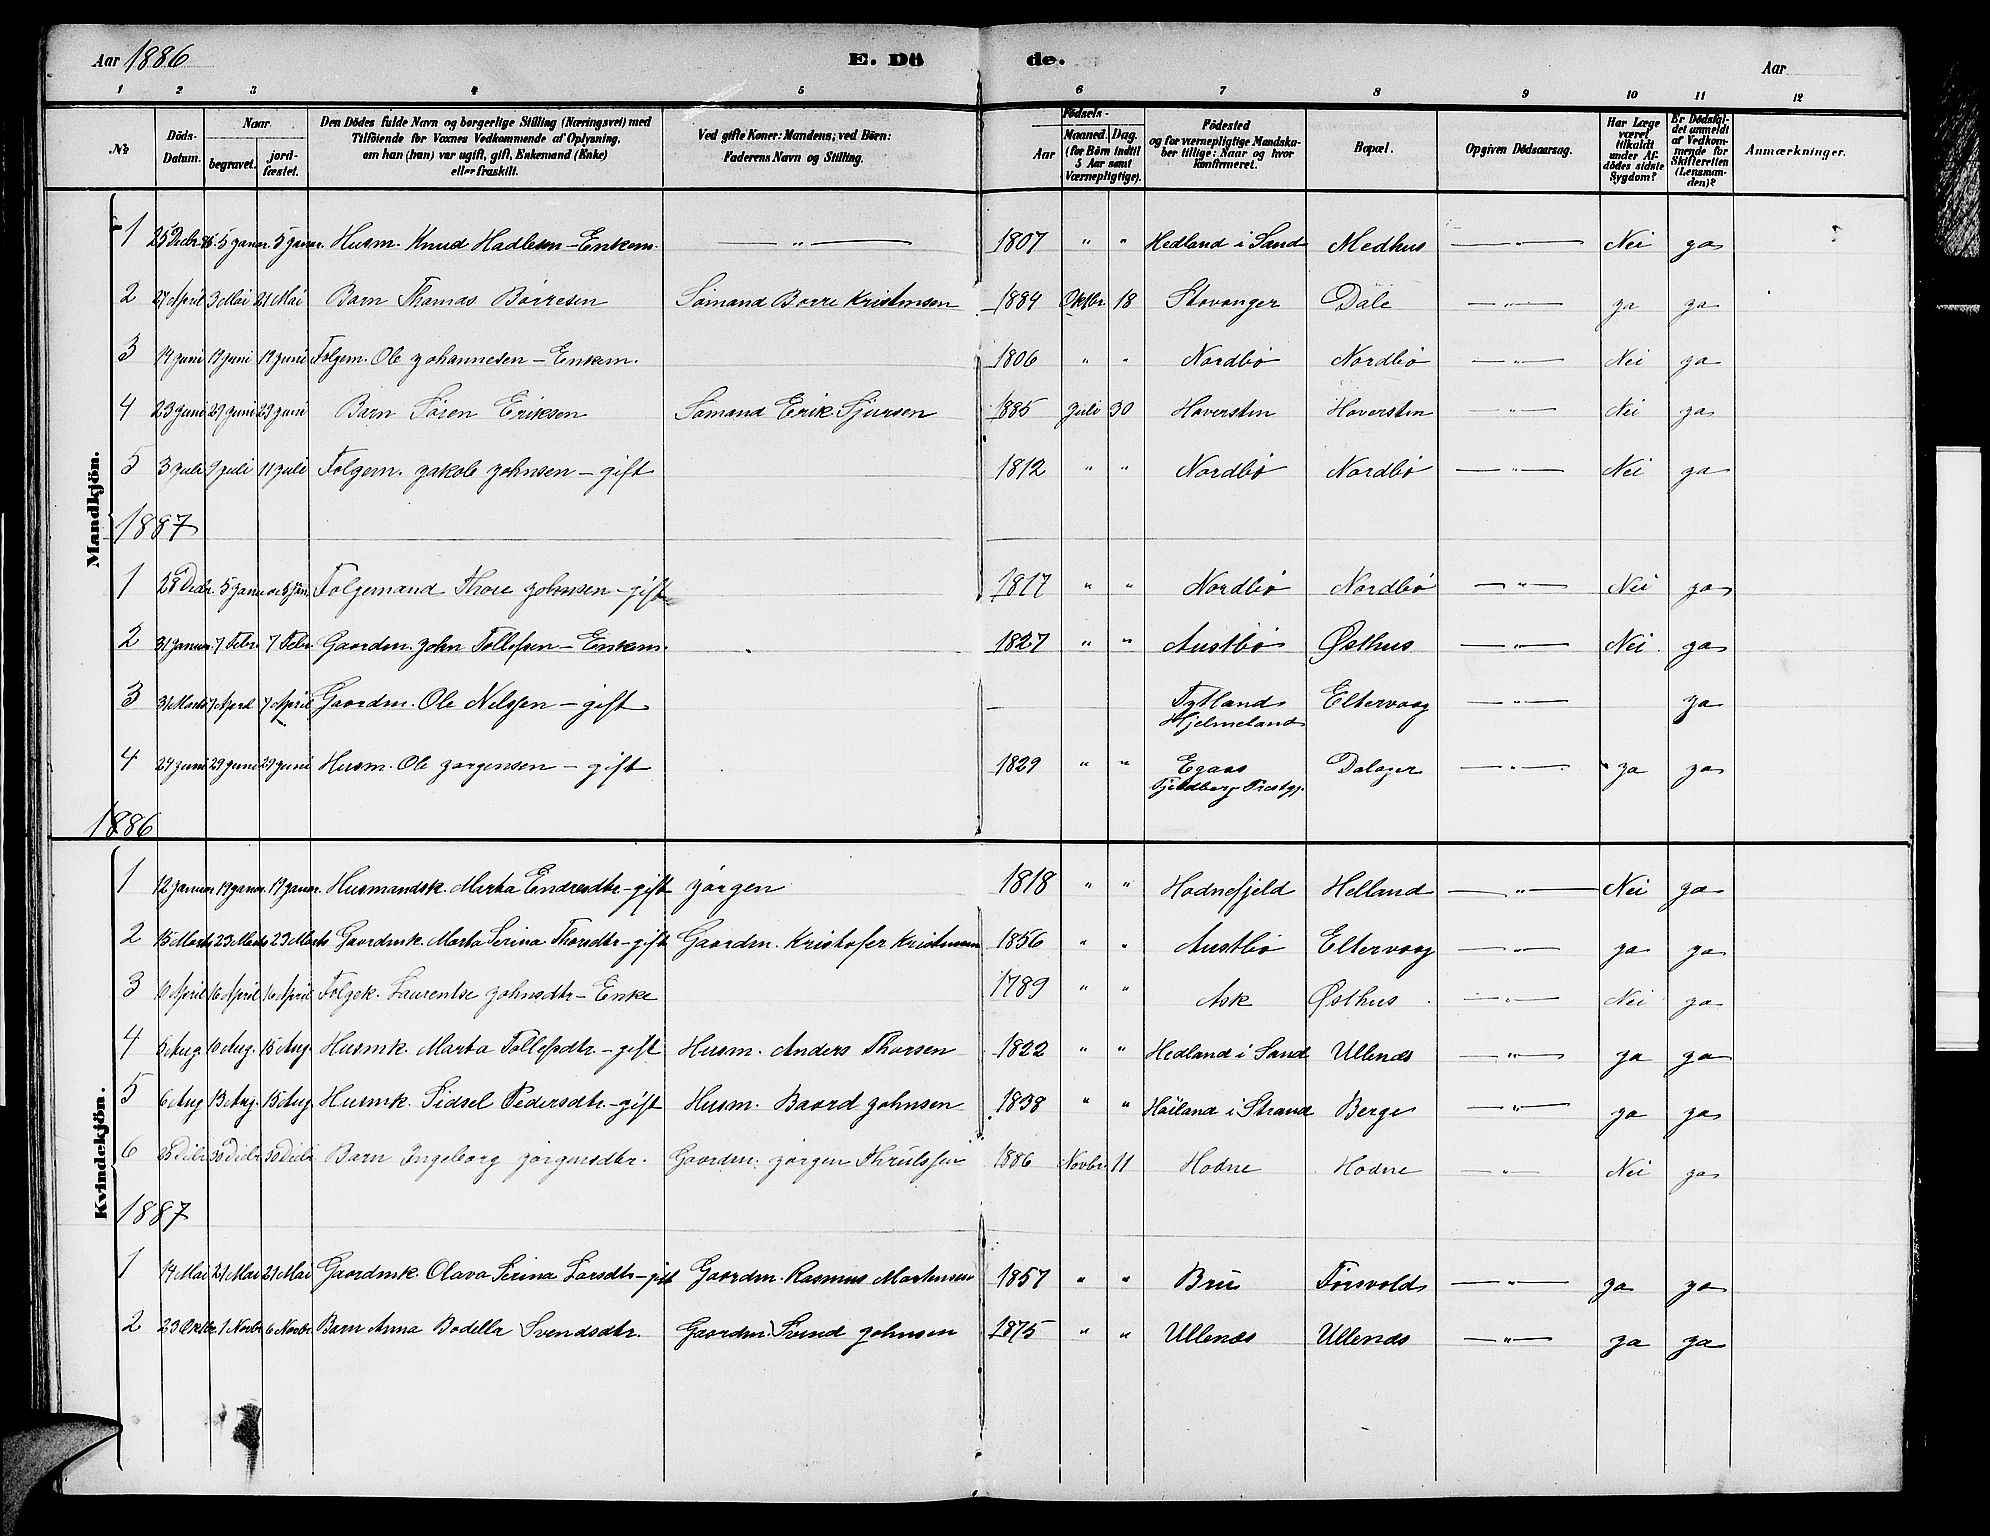 Aar 1886 E. Dö de. Aar
1 2 3 4 5 6 7 8 9 10 11 12
No Döds-Datum. Naar begravet. jord-fæstet. Den Dödes fulde Navn og borgerlige Stilling (Næringsvei) med Tilföiende for Voxnes Vedkommende af Oplysning, om han (hun) var ugift, gift, Enkemand (Enke) eller fraskilt. Ved gifte Koner: Mandens; ved Börn: Faderens Navn og Stilling. Födsels- Aar Maaned. Dag. (for Börn indtil 5 Aar samt Værnepligtige). Födested og for værnepligtige Mandskaber tillige: Naar og hvor konfirmeret. Bopæl. Opgiven Dödsaarsag. Har Læge været tilkaldt under Afdödes sidste Sygdom? Er Dödsfaldet anmeldt af Vedkommende for Skifteretten (Lensmanden)? Anmærkninger.
Mandkjön.
1 25 Decbr. 85. 5 Januar. 5 Januar. Husm. Knud Hadlesen - Enkem. — " — 1807 " " Hedland i Sand Medhus — " — Nei ja
2 27 April 3 Mai 21 Mai Barn Thomas Børresen Sømand Børre Kristensen 1884 Oktbr 18 Stavanger Dale — " — ja ja
3 14 Juni 19 Juni 19 Juni Folgem. Ole Johannesen - Enkem. 1806 " " Nordbø Nordbø — " — Nei ja
4 23 Juni 29 Juni 29 Juni Barn Søren Eriksen Sømand Erik Sjursen 1885 Juli 30 Haversten Haversten — " — Nei ja
5 3 Juli 9 Juli 11 Juli Folgem. Jakob Johnsen - gift 1812 " " Nordbø Nordbø — " — Nei ja
1887
1 28 Decbr. 5 Januar 5 Jan. Folgemand Thore Johnsen - gift 1817 " " Nordbø Nordbø — " — Nei ja
2 31 Januar. 7 Febr. 7 Febr. Gaardm. John Tollefsen - Enkem. 1827 " " Austbø Østhus — " — Nei ja
3 31 Marts 7 April 7 April Gaardm. Ole Nilssen - gift — Tytland Hjelmeland Eltervaag — " — ja
4 24 Juni 29 Juni 29 Juni Husm. Ole Jørgensen - gift 1829 " " Egaas Fjeldberg Præstgj. Dalager — " — ja ja
1886
Kvindekjön.
1 12 Januar 19 Januar. 19 Januar. Husmandsk. Marta Endresdtr - gift Jørgen 1818 " " Hodnefjeld Helland — " — Nei ja
2 15 Marts 23 Marts 23 Marts Gaardmk. Marta Serina Thorsdtr - gift Gaardm. Kristofer Kristensen 1856 " " Austbø Eltervaag — " — ja ja
3 6 April 16 April 16 April Folgek. Laurentse Johnsdtr - Enke 1789 " " Ask Østhus — " — Nei ja
4 5 Aug. 10 Aug. 15 Aug. Husmk. Marta Tollefsdtr. - gift Husm. Anders Thorsen 1822 " " Hedland i Sand Ullenæs — " — ja ja
5 6 Aug 13 Aug. 15 Aug. Husmk. Sidsel Pedersdtr. - gift Husm. Baard Johnsen 1838 " " Høiland i Strand Berge — " — ja ja
6 25 Decbr 30 Decbr. 30 Decbr Barn Ingeborg Jørgensdtr. Gaardm. Jørgen Thrulssen 1886 Novbr. 11 Hodne Hodne — " — Nei ja
1887
1 14 Mai 21 Mai 21 Mai Gaardmk. Olava Serina Larsdtr - gift Gaardm. Rasmus Mortensen 1857 " " Bru Førsvold — " — ja ja
2 23 Oktbr 1 Novbr 6 Novbr. Barn Anna Bodella Svendsdtr. Gaardm. Svend Johnsen 1875 " " Ullenæs Ullenæs — " — ja ja